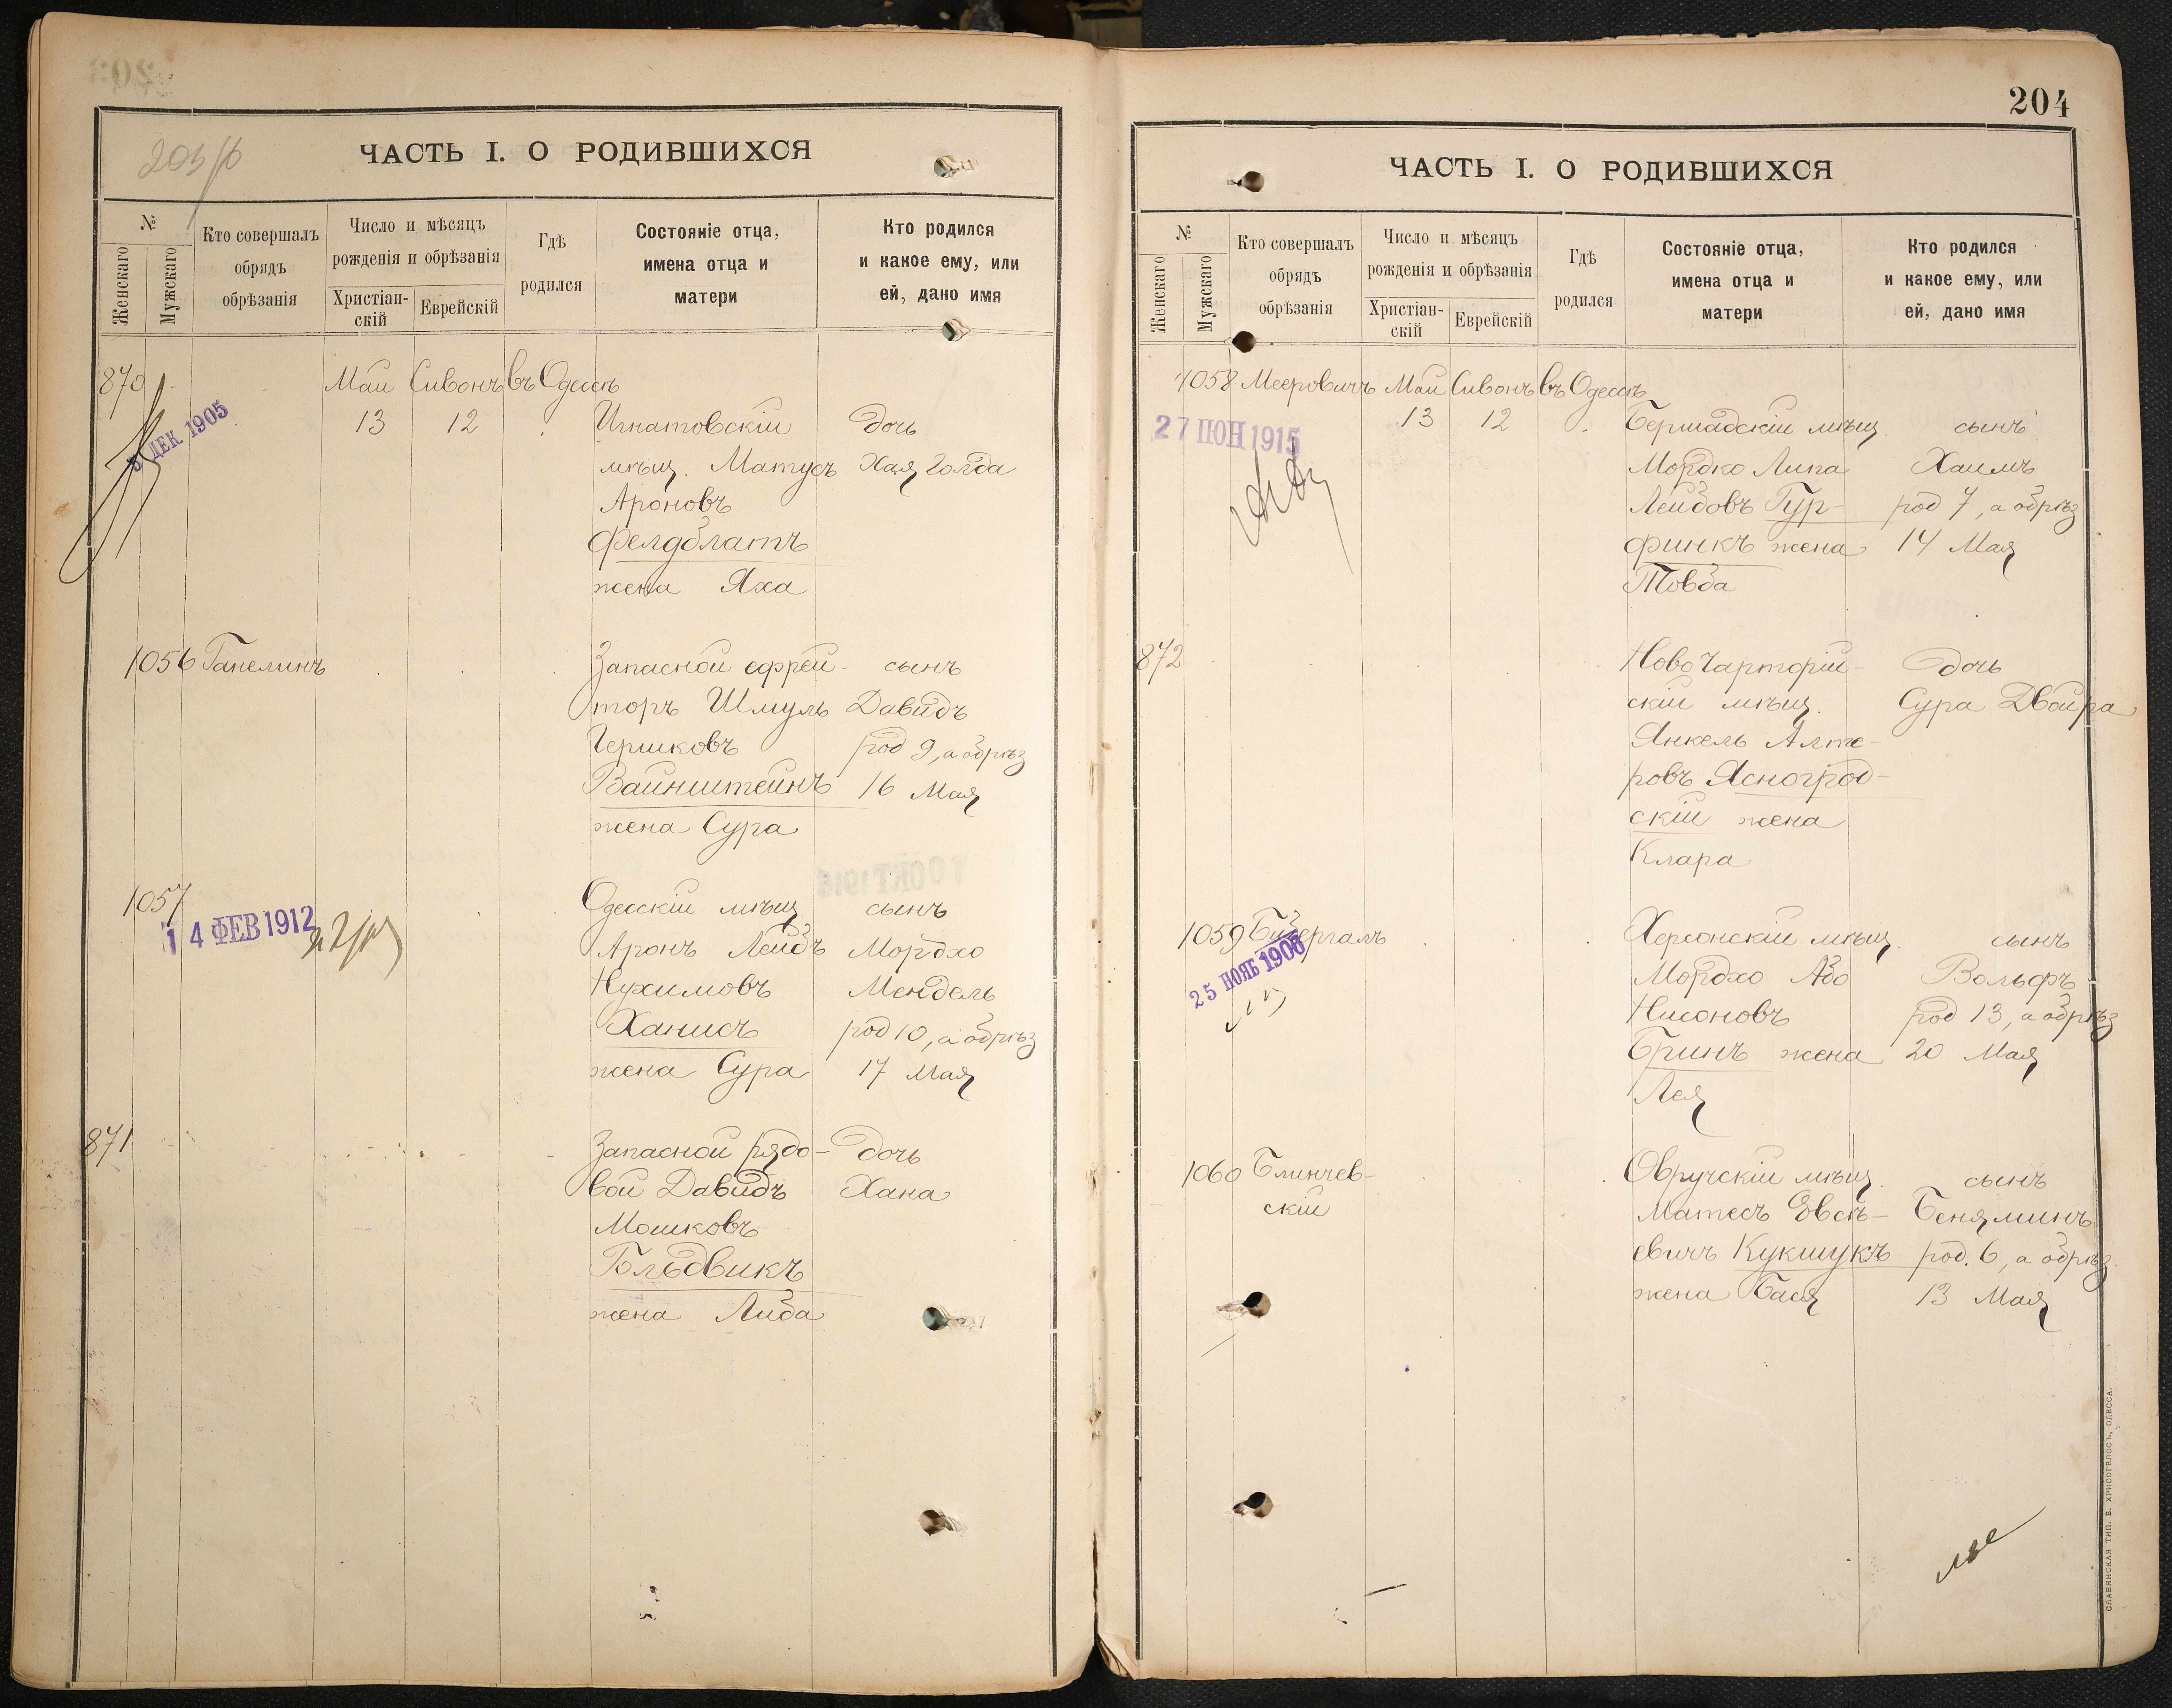 203/б
ЧАСТЬ I. О РОДИВШИХСЯ
№
Женскаго
Мужскаго
Кто совершалъ
обрядъ
обрѣзанія
Число и мѣсяцъ
рожденія и обрѣзанія
Христіан-
скій
Еврейскій
Гдѣ
родился
Состояніе отца,
имена отца и
матери
Кто родился
и какое ему, или
ей, дано имя
870 Май Сивонъ въ Одессѣ
5 ДЕК. 1905
13 12 Игнатовскій дочь
мѣщ. Матусъ Хая Голда
Ароновъ
Фелдблатъ
жена Яха
1056 Ганелинъ Запасной ефрей- сынъ
торъ Шмуль Давидъ
Гершковъ род 9, а обрѣз
Вайнштейнъ 16 Мая
жена Сура
1057 Одесскій мѣщ сынъ
14 ФЕВ 1912
Аронъ Лейбъ Мордхо
Нухимовъ Мендель
Ханисъ род 10, а обрѣз
жена Сура 17 Мая
871 Запасной рядо- дочь
вой Давидъ Хана
Мошковъ
Больдвикъ
жена Либа
204
ЧАСТЬ I. О РОДИВШИХСЯ
№
Женскаго
Мужскаго
Кто совершалъ
обрядъ
обрѣзанія
Число и мѣсяцъ
рожденія и обрѣзанія
Христіан-
скій
Еврейскій
Гдѣ
родился
Состояніе отца,
имена отца и
матери
Кто родился
и какое ему, или
ей, дано имя
1058 Мееровичъ Май Сивонъ въ Одессѣ
13 12 Бершадскій мѣщ. сынъ
1915
Мордко Липа Хаимъ
Лейбовъ Гур- род 7, а обрѣз
финкъ жена 14 Мая
Товба
872 Ново Чарторій- дочь
скій мѣщ. Сура Двойра
Янкель Алте-
ровъ Ясноград-
скій жена
Клара
1059 Херсонскій мѣщ. сынъ
25 НОЯБ 1906
Мордхо Або Вольфъ
Нисоновъ род 13, а обрѣз
Гринъ жена 20 Мая
Лея
1060 Блинчев- Овручскій мѣщ. сынъ
скій Матесъ Овсѣ- Беняминъ
евичъ Кукшукъ род. 6, а обрѣз.
жена Бася 13 Мая
СЛАВЯНСКАЯ ТИП. Е. ХРИСОГЕЛОСЪ, ОДЕССА.